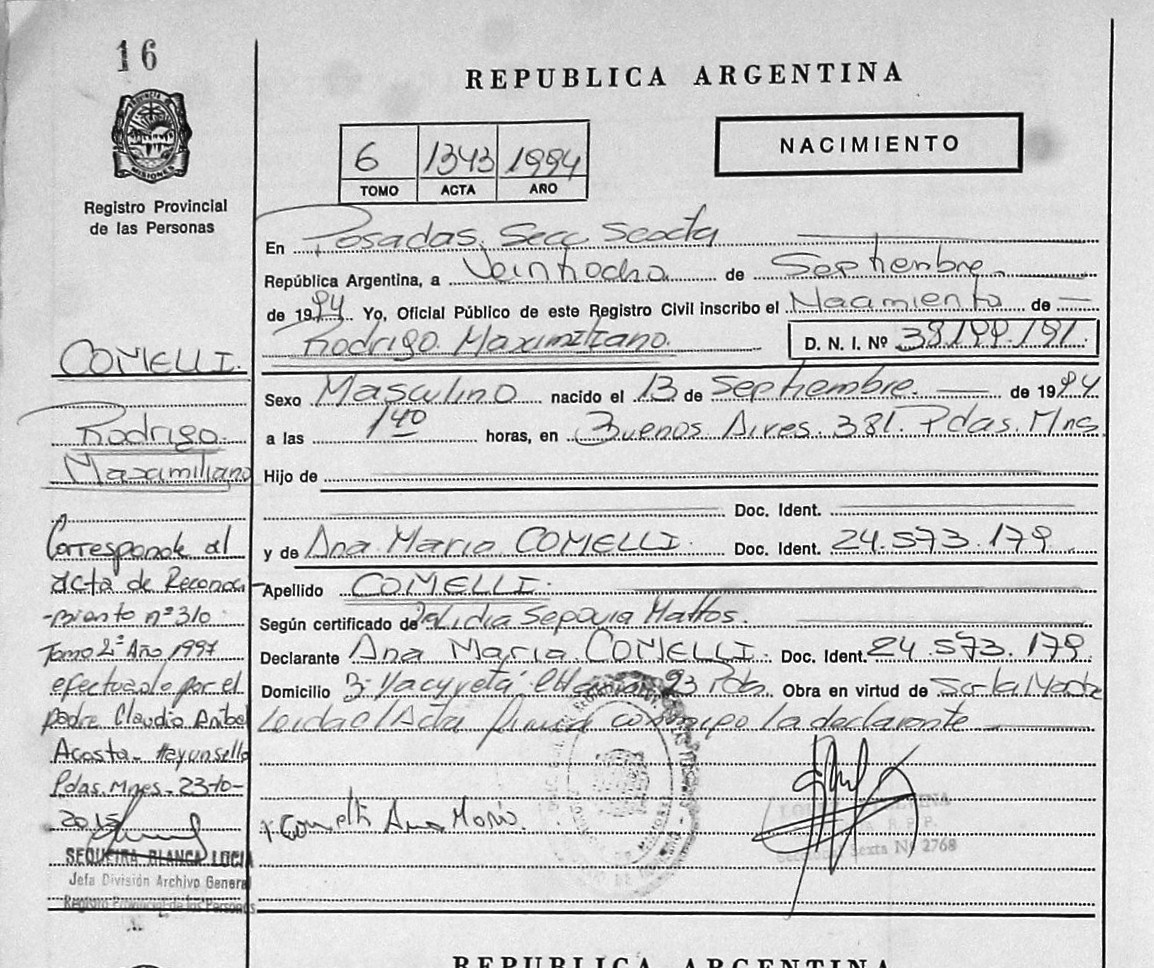 16
REPUBLICA ARGENTINA
PROVINCIA DE
MISIONES
Registro Provincial
de las Personas
6 1343 1994
TOMO ACTA AÑO
NACIMIENTO
En Posadas, Secc Sexta
República Argentina, a Veintiocho de Septiembre.
de 1994. Yo, Oficial Público de este Registro Civil inscribo el Nacimiento de
Rodrigo Maximiliano. D. N. I. Nº 38.199.191
Sexo Masculino nacido el 13 de Septiembre. de 1994
a las 1 40 horas, en Buenos Aires. 381. Pdas. Mns
Hijo de
Doc. Ident.
y de Ana Maria COMELLI. Doc. Ident. 24.573.179
Apellido COMELLI.
Según certificado de Lidia Mattos.
Declarante Ana Maria COMELLI. Doc. Ident. 24.573.179
Domicilio Yacyretá 23 Pdas. Obra en virtud de Ser la Madre
Leida el Acta firma conmigo la declarante
Comelli Ana Maria.
Seccional Sexta Nº 2768
COMELLI.
Rodrigo
Maximiliano
Corresponde al
acta de Reconoci
-miento nº 310
Tomo 2º Año 1997
efectuado por el
padre Claudio Anibal
Acosta-
Pdas. Mnes - 23-10-
2015
SEQUEIRA BLANCA LUCIA
Jefa División Archivo General
Registro Provincial de las Personas
REPUBLICA ARGENTINA